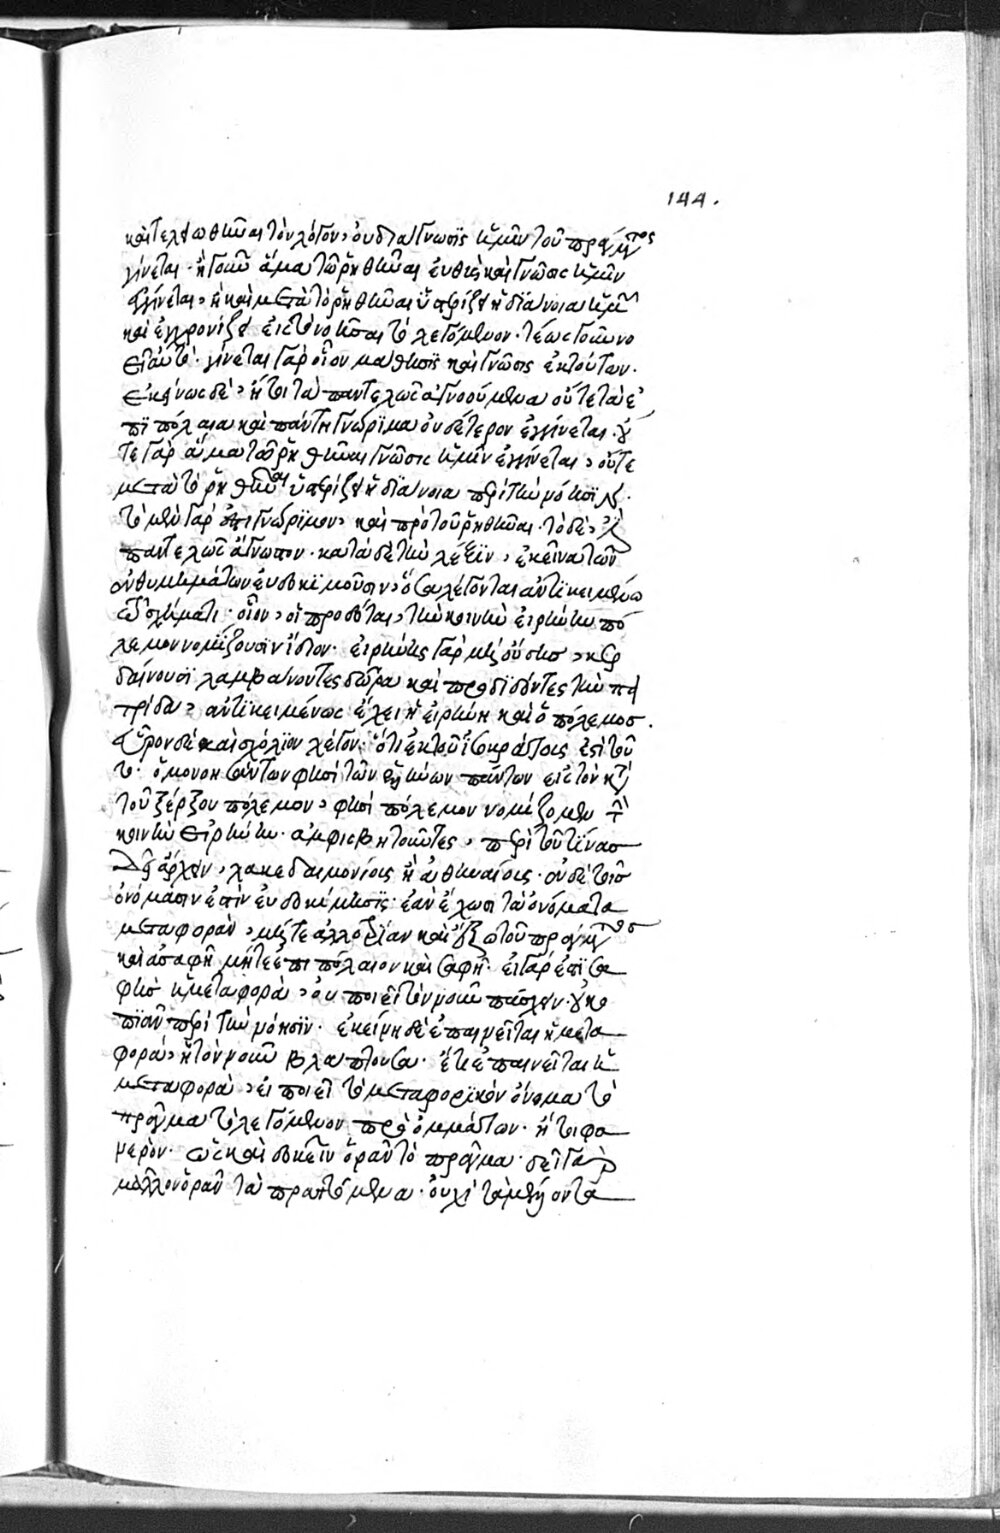 144.
καὶ τελεωθῆναι τὸν λόγον, οὐ διάγνωσις ἡμῖν τοῦ πράγματος
γίνεται· ἤγουν ἅμα τῶ ῥηθῆναι εὐθὺς καὶ γνῶσις ἡμῖν
ἐγγίνεται, ἢ καὶ μετὰ τὸ ῥηθῆναι ὑστερίζει ἡ διάνοια ἡμῶν
καὶ ἐγχρονίζει εἰς τὸ νοῆσαι τὸ λεγόμενον· τέως γοῦν νοεῖ
αὐτό· γίνεται γὰρ οἷον μάθησις καὶ γνῶσις ἐκ τούτων·
ἐκείνως δὲ, ἤτοι τὰ παντελῶς ἀγνοούμενα οὔτε τὰ ἐ
πιπόλαια καὶ πάντη γνώριμα οὐδέτερον ἐγγίνεται· οὔ
τε γὰρ ἅμα τῶ ῥηθῆναι γνῶσις ἡμῖν ἐγγίνεται, οὔτε
μετὰ τὸ ῥηθῆναι ὑστερίζει ἡ διάνοια περὶ τὴν νόησιν·
τὸ μὲν γὰρ ἦν γνώριμον, καὶ πρὸ τοῦ ῥηθῆναι· τὸ δὲ,
παντελῶς ἄγνωστον· κατὰ δὲ τὴν λέξιν, ἐκεῖνα τῶν
ἐνθυμημάτων εὐδοκιμοῦσιν, ὅσα λέγονται ἀντικειμένω
σχήματι· οἷον, οἱ προδόται, τὴν κοινὴν εἰρήνην πό
λεμον νομίζουσιν ἴδιον· εἰρήνης γὰρ μὴ οὔσης, κερ
δαίνουσι λαμβάνοντες δῶρα καὶ προδιδόντες τὴν πα
τρίδα, ἀντικειμένως ἔχει ἡ εἰρήνη καὶ ὁ πόλεμος.
εὗρον δὲ καὶ σχόλιον λέγον· ὅτι ἐκ τοῦ ἰσοκράτους ἐστὶ τοῦ
το· ὁμονοησάντων φησὶ τῶν ἑλλήνων πάντων εἰς τὸν κατὰ
τοῦ ξέρξου πόλεμον, φησὶ πόλεμον νομίζομεν τὴν
κοινὴν εἰρήνην· ἀμφισβητοῦντες, περὶ τοῦ τίνας
δεῖ ἄρχειν, λακεδαιμονίοις ἢ ἀθηναίοις· ἐν δὲ τοῖς
ὀνόμασιν ἐστὶν εὐδοκίμησις· ἐὰν ἔχωσι τὰ ὀνόματα
μεταφορὰν, μήτε ἀλλοτρίαν καὶ ἔξω τοῦ πράγματος
καὶ ἀσαφῆ μήτε ἐπιπόλαιον καὶ σαφῆ· εἰ γάρ ἐστι σα
φὴς ἡ μεταφορὰ, οὐ ποιεῖ τὸν νοῦν πάσχειν· οὐ κο
πιᾶν περὶ τὴν νόησιν· ἐκείνη δὲ ἐπαινεῖται ἡ μετα
φορὰ, ἡ τὸν νοῦν βλάπτουσα· ἔτι ἐπαινεῖται ἡ
μεταφορὰ, εἰ ποιεῖ τὸ μεταφορικὸν ὄνομα τὸ
πρᾶγμα τὸ λεγόμενον πρὸ ὀμμάτων· ἤτοι φα
νερὸν· ὡς καὶ δοκεῖν ὁρᾶν τὸ πρᾶγμα· δεῖ γὰρ
μᾶλλον ὁρᾶν τὰ πραττόμενα· οὐχὶ τὰ μέλλοντα